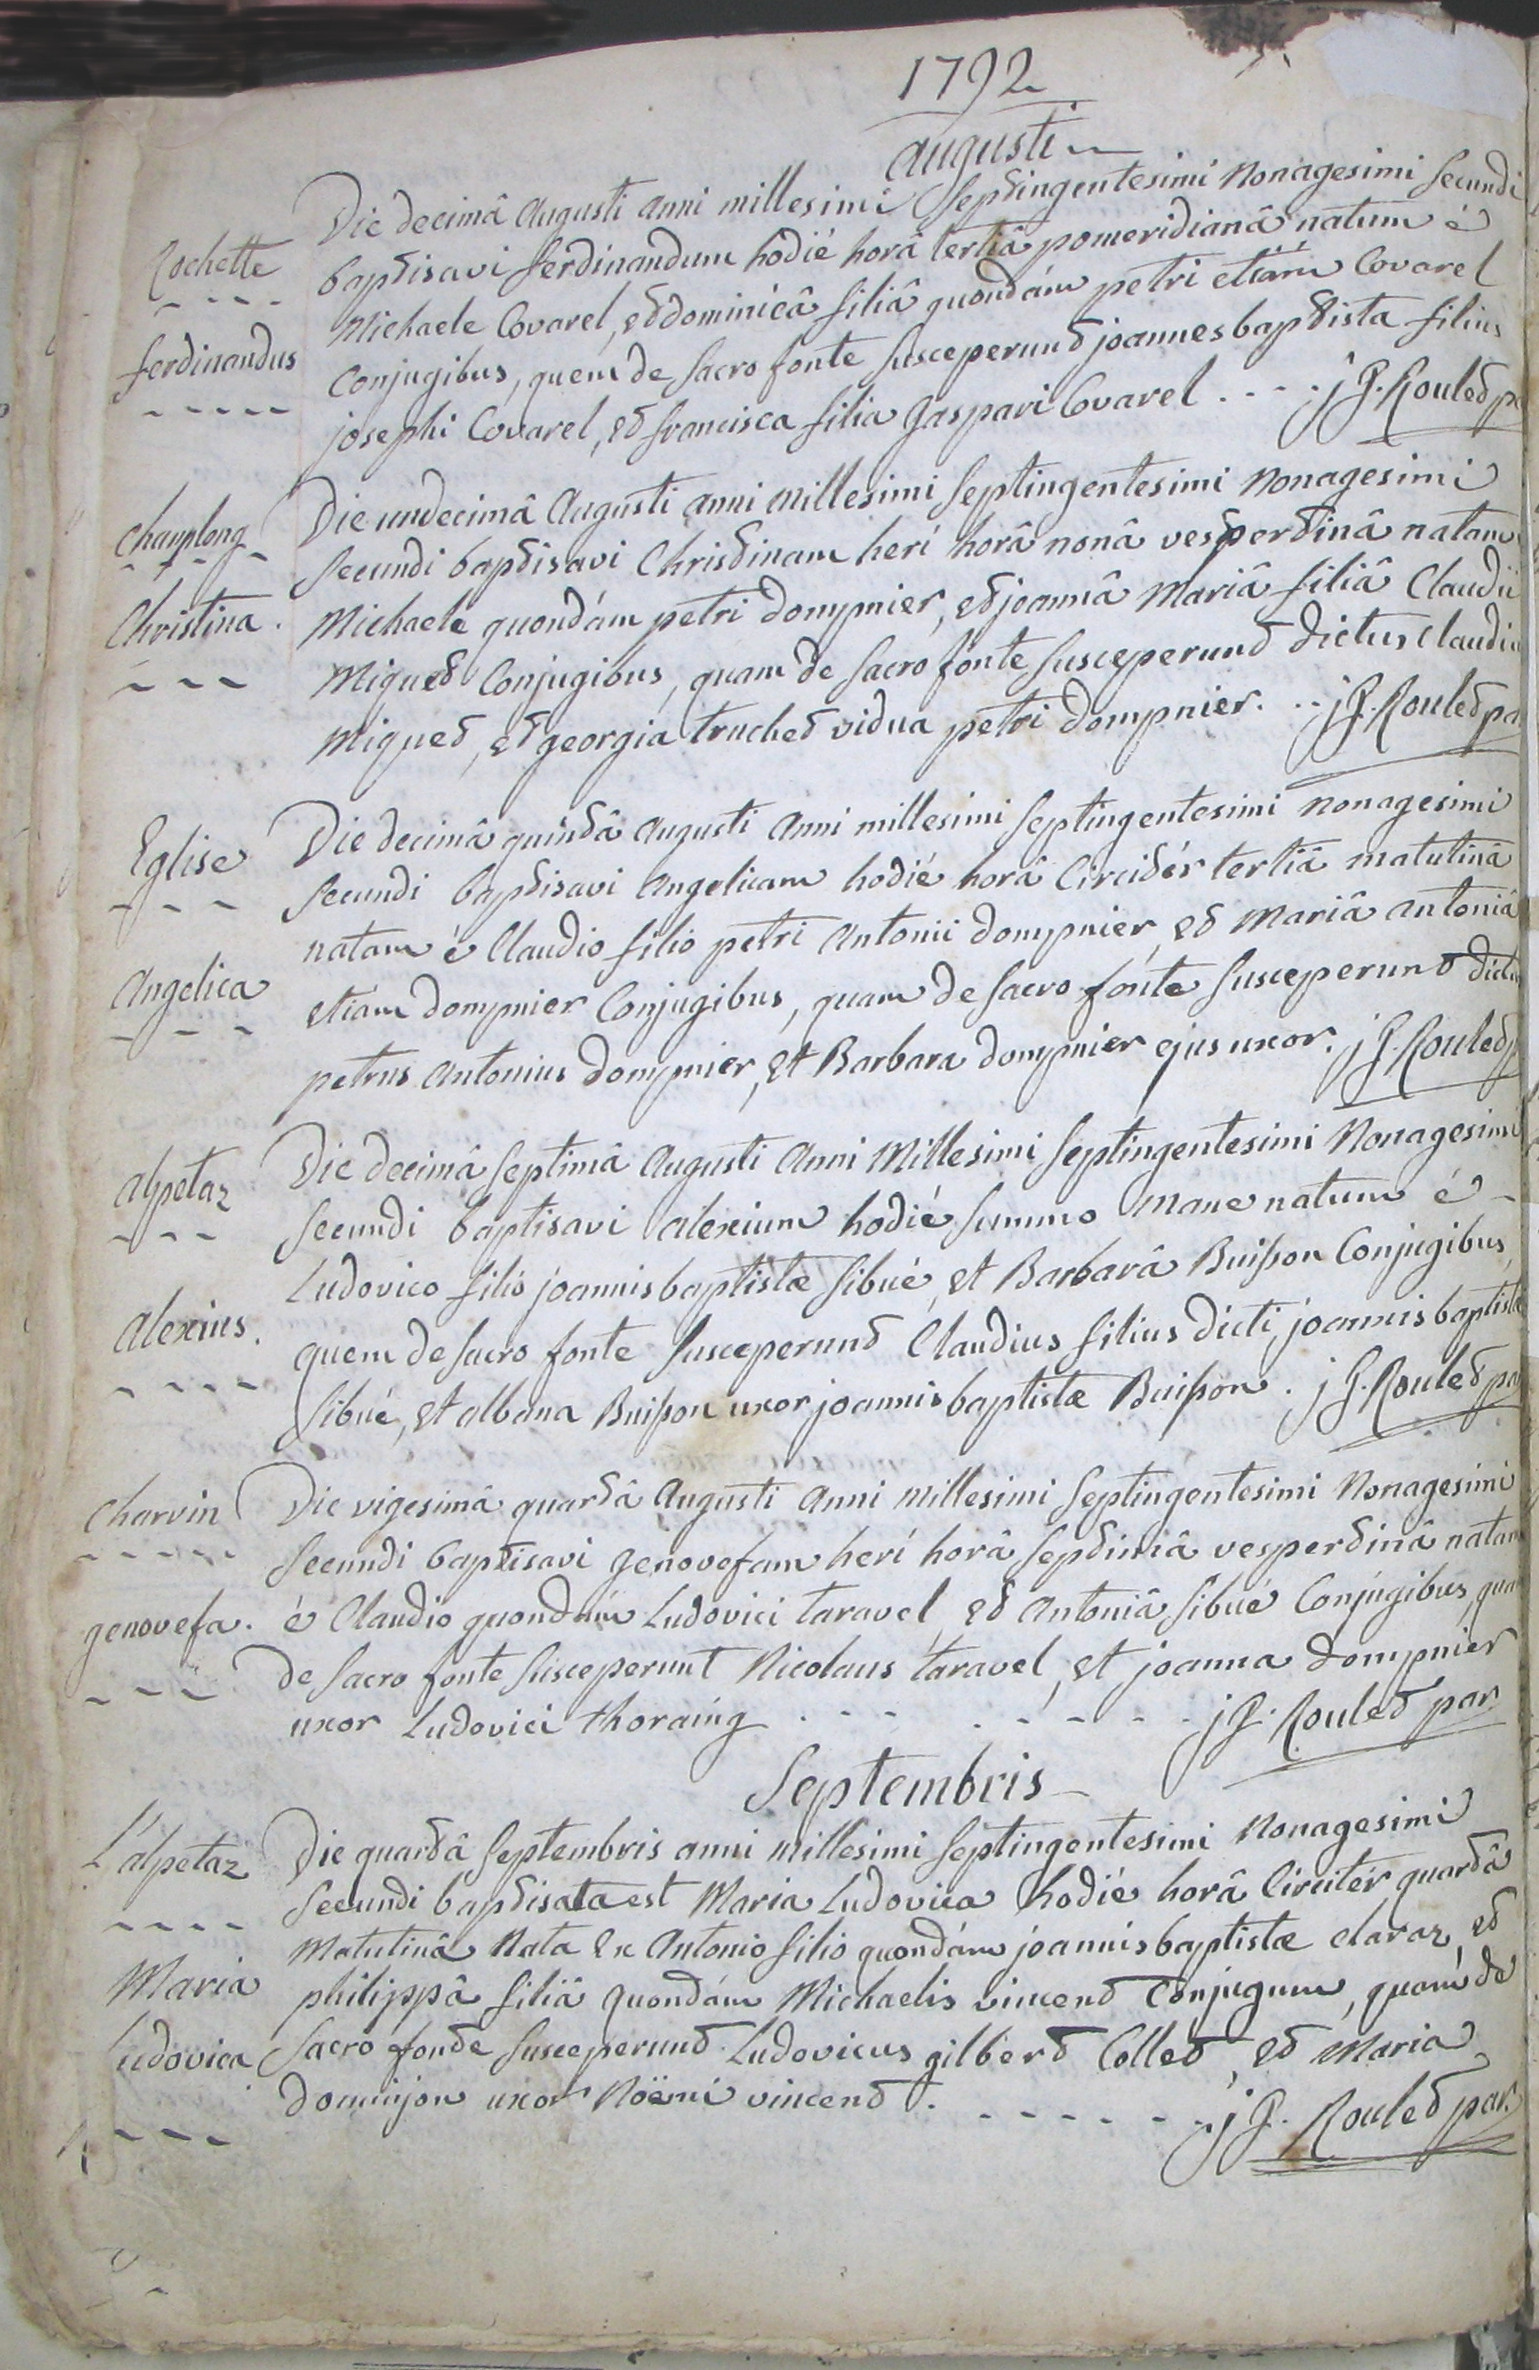 1792
augusti
Die decimâ Augusti anni millesimi Septingentesimi Nonagesimi Secundi
Rochette
baptisavi ferdinandum hodié horâ tertiâ pomeridianâ natum é
Michaele Covarel, et dominicâ filiâ quondám petri etiám Covarel
ferdinandus
Conjugibus, quem de sacro fonte susceperunt joannes baptista filius
josephi Covarel, et francisca filia gaspari Covarel . - - - j P. Roulet p
Die undecimâ Augusti anni Millesimi Septingentesimi Nonagesimi
Champlong
Secundi baptisavi Christinam herí horâ nonâ vespertinâ natam
Christina.
Michaele quondám petri dompnier, et joannâ Mariâ filiâ Claudii
Miquet Conjugibus, quam de sacro fonte susceperunt dictus Claudiu
Miquet, et georgia truchet vidua petri dompnier. - - j P. Roulet pa
Die decimâ quintâ augusti Anni millesimi Septingentesimi nonagesimi
Eglise
Secundi baptisavi Angelicam hodié horâ Circitér tertiâ matutinâ
natam é Claudio filio petri Antonii dompnier, et Mariâ antoniâ
Angelica
etiam dompnier Conjugibus, quam de sacro fonte susceperunt dictu
petrus Antonius dompnier, et Barbara dompnier ejus uxor. j P. Roulet p
Die decimâ Septimâ Augusti Anni Millesimi Septingentesimi Nonagesimi
alpetaz
Secundi baptisavi alexium hodié summo mane natum é -
Ludovico filio joannis baptistæ Sibué, et Barbarâ Buisson Conjugibus,
alexius.
quem de sacro fonte susceperunt Claudius filius dicti joannis baptistæ
Sibué, et albana Buisson uxor joannis baptistæ Buisson. j P. Roulet pa
Die vigesimâ quartâ Augusti Anni Millesimi Septingentesimi Nonagesimi
Charvin
Secundi baptisavi genovefam herí horâ septimâ vespertinâ natam
genovefa.
é Claudio quondám Ludovici taravel, et Antoniâ Sibué Conjugibus, qua
de sacro fonte susceperunt Nicolaus taravel, et joanna dompnier
uxor Ludovici thoraing - - - - - - - - j P. Roulet par.
Septembris
Die quartâ Septembris anni Millesimi Septingentesimi Nonagesimi
L'alpetaz
Secundi baptisata est Maria Ludovica hodié horâ Circitér quartâ
Matutinâ Nata ex Antonio filio quondám joannis baptistæ claraz, et
Maria
philippâ filiâ quondám Michaelis vincent Conjugum, quam de
Ludovica
sacro fonte susceperunt Ludovicus gilbert Collet, et Maria
dominjon uxor Noëmi vincent . - - - - - - - j P. Roulet par.